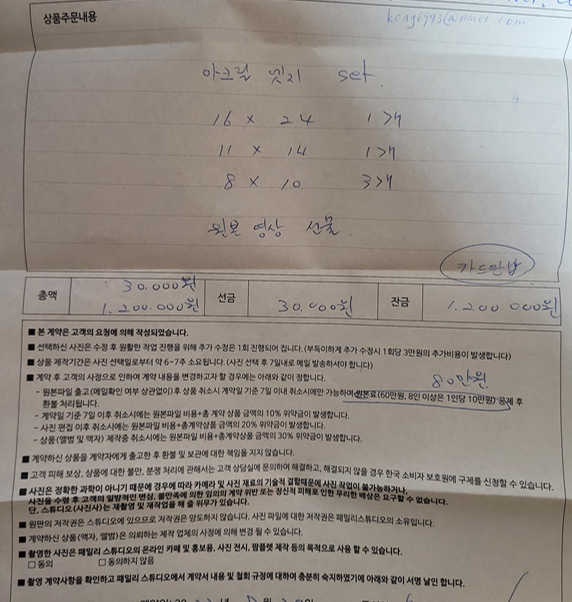 상품주문내용
아크릴 빗지 set.
16 × 24 1개
11 × 14 1개
8 × 10 3개
원본 영상 선물.
카드완납
총액 30.000원 1.200.000원 선금 30.000원 잔금 1.200 000원
■ 본 계약은 고객의 요청에 의해 작성되었습니다.
■ 선택하신 사진은 수정 후 원활한 작업 진행을 위해 추가 수정은 1회 진행되어 집니다. (부득이하게 추가 수정시 1회당 3만원의 추가비용이 발생합니다)
■ 상품 제작기간은 사진 선택일로부터 약 6~7주 소요됩니다. (사진 선택 후 7일내로 메일 발송하셔야 합니다)
■ 계약 후 고객의 사정으로 인하여 계약 내용을 변경하고자 할 경우에는 아래와 같이 정합니다.
80만원
- 원본파일 출고(메일확인 여부 상관없이) 후 상품 취소시 계약일 기준 7일 이내 취소시에만 가능하며 원본료(60만원, 8인 이상은 1인당 10만원) 공제 후
환불 처리됩니다.
- 계약일 기준 7일 이후 취소시에는 원본파일 비용+총 계약 상품 금액의 10% 위약금이 발생합니다.
- 사진 편집 이후 취소시에는 원본파일 비용+총계약상품 금액의 20% 위약금이 발생합니다.
- 상품(앨범 및 액자) 제작중 취소시에는 원본파일 비용+총계약상품 금액의 30% 위약금이 발생합니다.
■ 계약하신 상품을 계약자에게 출고한 후 환불 및 보관에 대한 책임을 지지 않습니다.
■ 고객 피해 보상, 상품에 대한 불만, 분쟁 처리에 관해서는 고객 상담실에 문의하여 해결하고, 해결되지 않을 경우 한국 소비자 보호원에 구제를 신청할 수 있습니다.
■ 사진은 정확한 과학이 아니기 때문에 경우에 따라 카메라 및 사진 재료의 기술적 결함때문에 사진 작업이 불가능하거나,
사진을 수령 후 고객의 일방적인 변심, 불만족에 의한 임의의 계약 위반 또는 정신적 피해로 인한 무리한 배상은 요구할 수 없습니다.
단, 스튜디오(사진사)는 재촬영 및 재작업을 해 줄 위무가 있습니다.
■ 원판의 저작권은 스튜디오에 있으므로 저작권은 양도하지 않습니다. 사진 파일에 대한 저작권은 패밀리스튜디오의 소유입니다.
■ 계약하신 상품(액자, 앨범)은 의뢰하는 제작 업체의 사정에 의해 변경 될 수 있습니다.
■ 촬영한 사진은 패밀리 스튜디오의 온라인 카페 및 홍보용, 사진 전시, 팜플렛 제작 등의 목적으로 사용 할 수 있습니다.
□ 동의 □ 동의하지 않음
■ 촬영 계약사항을 확인하고 패밀리 스튜디오에서 계약서 내용 및 철회 규정에 대하여 충분히 숙지하였기에 아래와 같이 서명 날인 합니다.